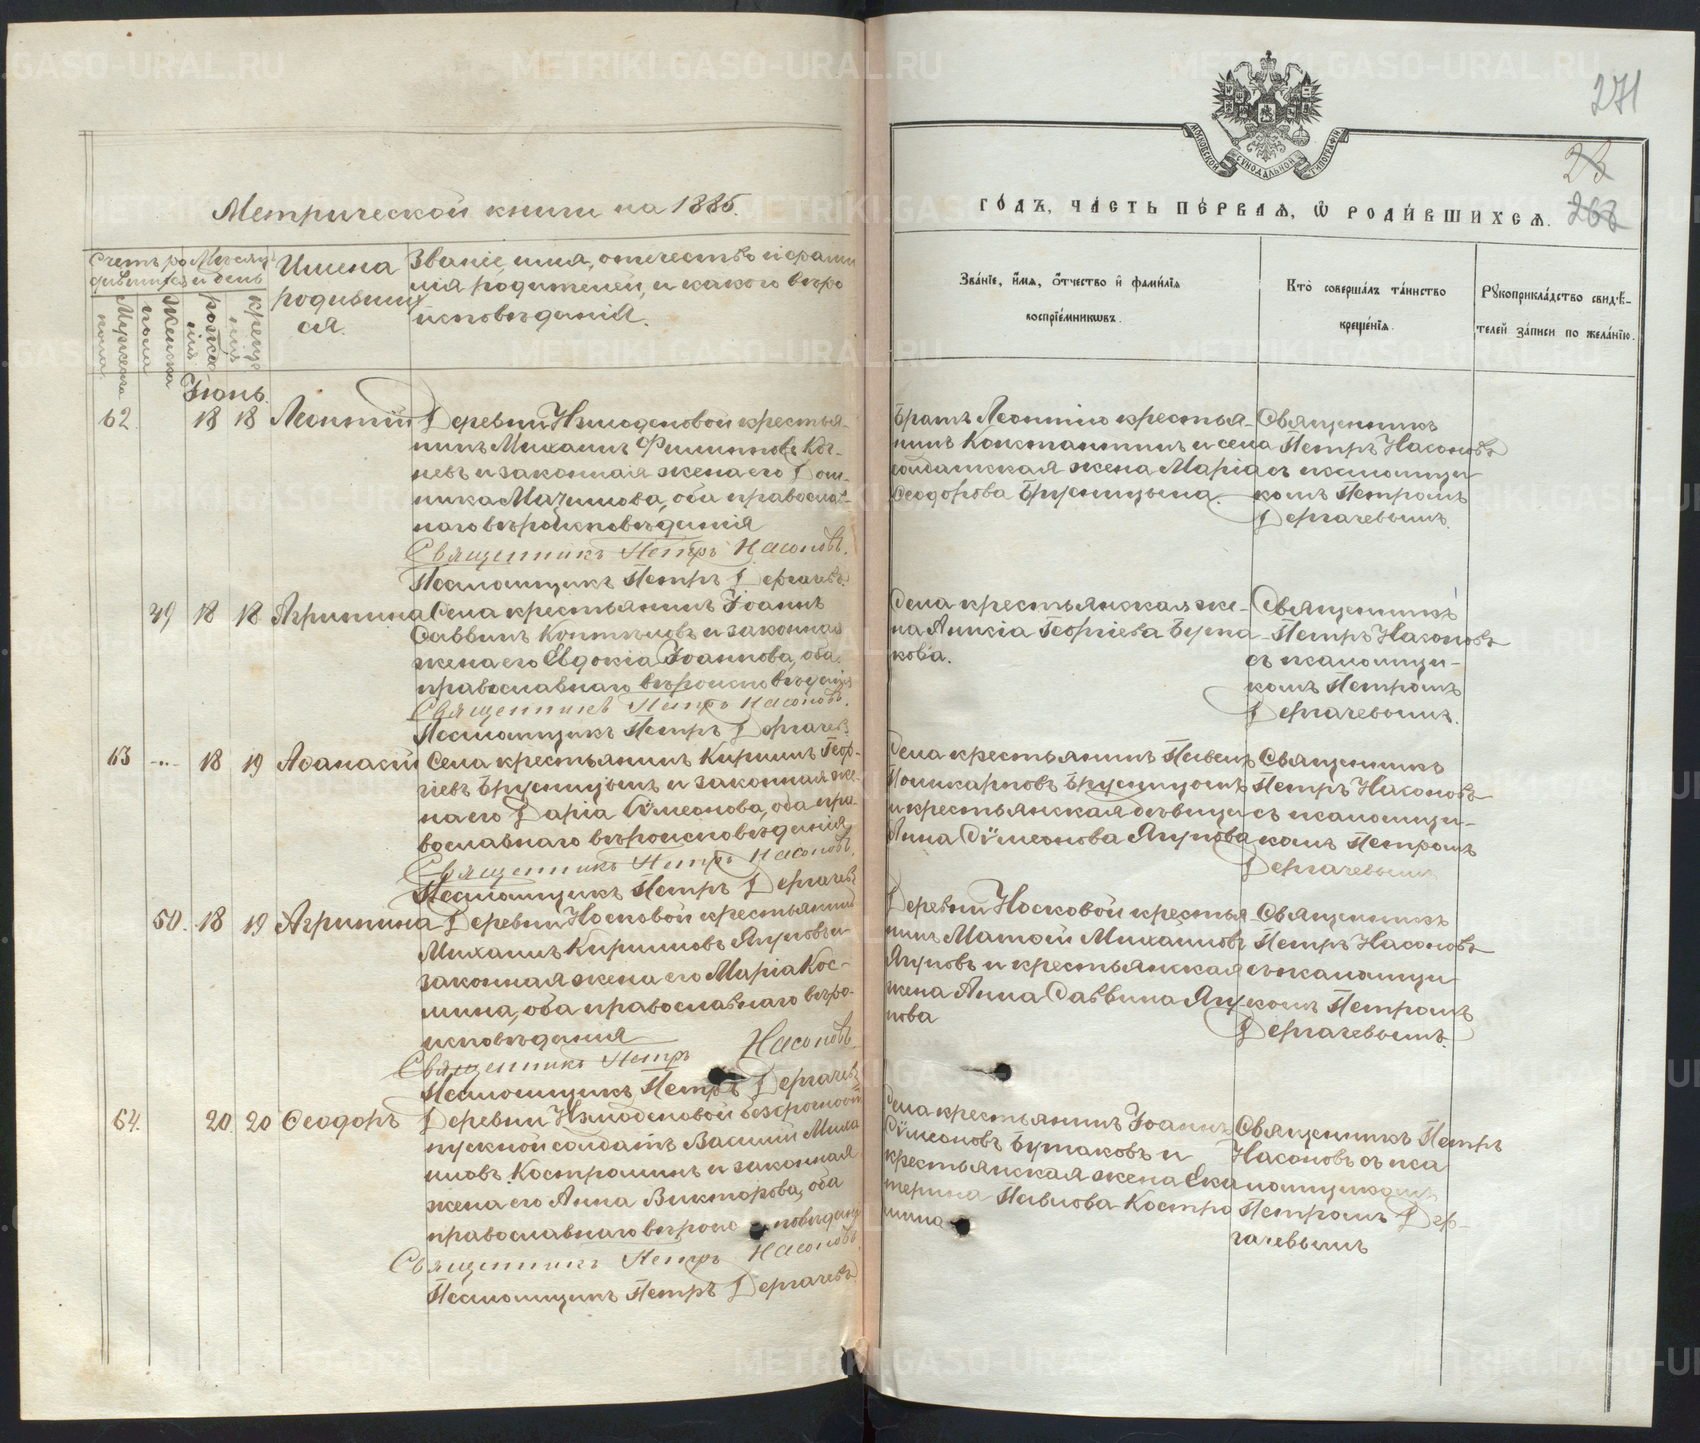 271
23
268
Метрической книги на 1886.
годъ, часть первая, ѡ родившихся.
Счетъ ро
дившихся
Мужеска
пола.
Женска
пола
Месяцъ
и день
рожде
нія
креще
нія
Имена
родивших
ся.
Званіе, имя, отчество и фами
лія родителей, и какого веро
исповѣданія.
Званіе, имя, отчество и фамилія
воспріемниковъ.
Кто совершалъ таинство
крещенія.
Рукоприкладство свидѣ-
телей записи по желанію.
Іюнь.
62 18 18 Леонтій
Деревни Измоденовой крестья-
нинъ Михаилъ Филипповъ
и законная жена его Дом-
ника, оба православ-
наго вѣроисповѣданія
Священникъ Петръ Насоновъ.
Псаломщикъ Петръ Дергачевъ.
Братъ Леонтію крестья-
нинъ Константинъ и села
солдатская жена Марія
Ѳеодорова Брусницына.
Священникъ
Петръ Насоновъ
съ псаломщи-
комъ Петромъ
Дергачевымъ.
49 18 18 Агрипина
Села крестьянинъ Іоаннъ
Саввинъ Коптяловъ и законная
жена его Евдокія Іоаннова, оба
православнаго вѣроисповѣданія
Священникъ Петръ Насоновъ.
Псаломщикъ Петръ Дергачевъ.
Села крестьянская же-
на Анисія Георгіева Бурма-
кова.
Священникъ
Петръ Насоновъ
съ псаломщи-
комъ Петромъ
Дергачевымъ.
63 -"- 18 19 Аѳанасій
Села крестьянинъ Кирилъ Геор-
гіевъ Брусницынъ и законная же-
на его Дарія Сѵмеонова, оба пра-
вославнаго вѣроисповѣданія
Священникъ Петръ Насоновъ.
Псаломщикъ Петръ Дергачевъ
Села крестьянинъ Павелъ
Поликарповъ Брусницынъ
и крестьянская дѣвица
Анна Сѵмеонова Ячунова
Священникъ
Петръ Насоновъ
съ псаломщи-
комъ Петромъ
Дергачевымъ
50. 18 19 Агрипина
Деревни Носковой крестьянинъ
Михаилъ Кириловъ Ягуповъ и
законная жена его Марія Кос-
мина, оба православнаго вѣро-
исповѣданія
Священникъ Петръ Насоновъ
Псаломщикъ Петръ Дергачевъ
Деревни Носковой крестья-
нинъ Матѳей Михаиловъ
Ягуповъ и крестьянская
жена Анна Саввина Ягу-
пова
Священникъ
Петръ Насоновъ
съ псаломщи-
комъ Петромъ
Дергачевымъ.
64. 20 20 Ѳеодоръ
Деревни Измоденовой безсрочноот
пускной солдатъ Василій Михаи
ловъ Костроминъ и законная
жена его Анна Викторова, оба
православнаго вѣроисповѣдан
Священникъ Петръ Насоновъ
Псаломщикъ Петръ Дергачевъ
Села крестьянинъ Іоаннъ
Сѵмеоновъ Бутаковъ и
крестьянская жена Ека
терина Павлова Костро
мина
Священникъ Петръ
Насоновъ съ пса
ломщикомъ
Петромъ Дер-
гачевымъ